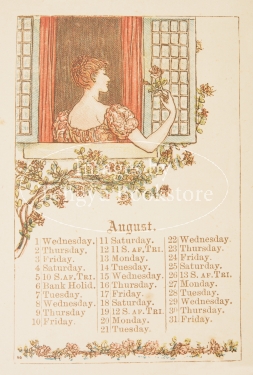 August.
1 Wednesday.
2 Thursday.
3 Friday.
4 Saturday.
5 10 S. AF. TRI.
6 Bank Holid.
7 Tuesday.
8 Wednesday.
9 Thursday
10 Friday.
11 Saturday.
12 11 S. AF. TRI.
13 Monday.
14 Tuesday.
15 Wednesday.
16 Thursday.
17 Friday.
18 Saturday.
19 12 S. AF. TRI.
20 Monday.
21 Tuesday.
22 Wednesday
23 Thursday.
24 Friday.
25 Saturday.
26 13 S. AF. TRI.
27 Monday.
28 Tuesday.
29 Wednesday.
30 Thursday.
31 Friday.